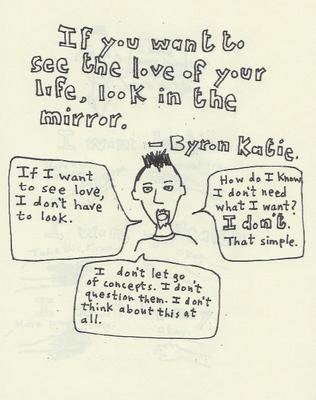 If you want to
see the love of your
life, look in the
mirror.
- Byron Katie.
If I want
to see love,
I don't have
to look.
How do I know
I don't need
what I want?
I don't.
That simple.
I don't let go
of concepts. I don't
question them. I don't
think about this at
all.